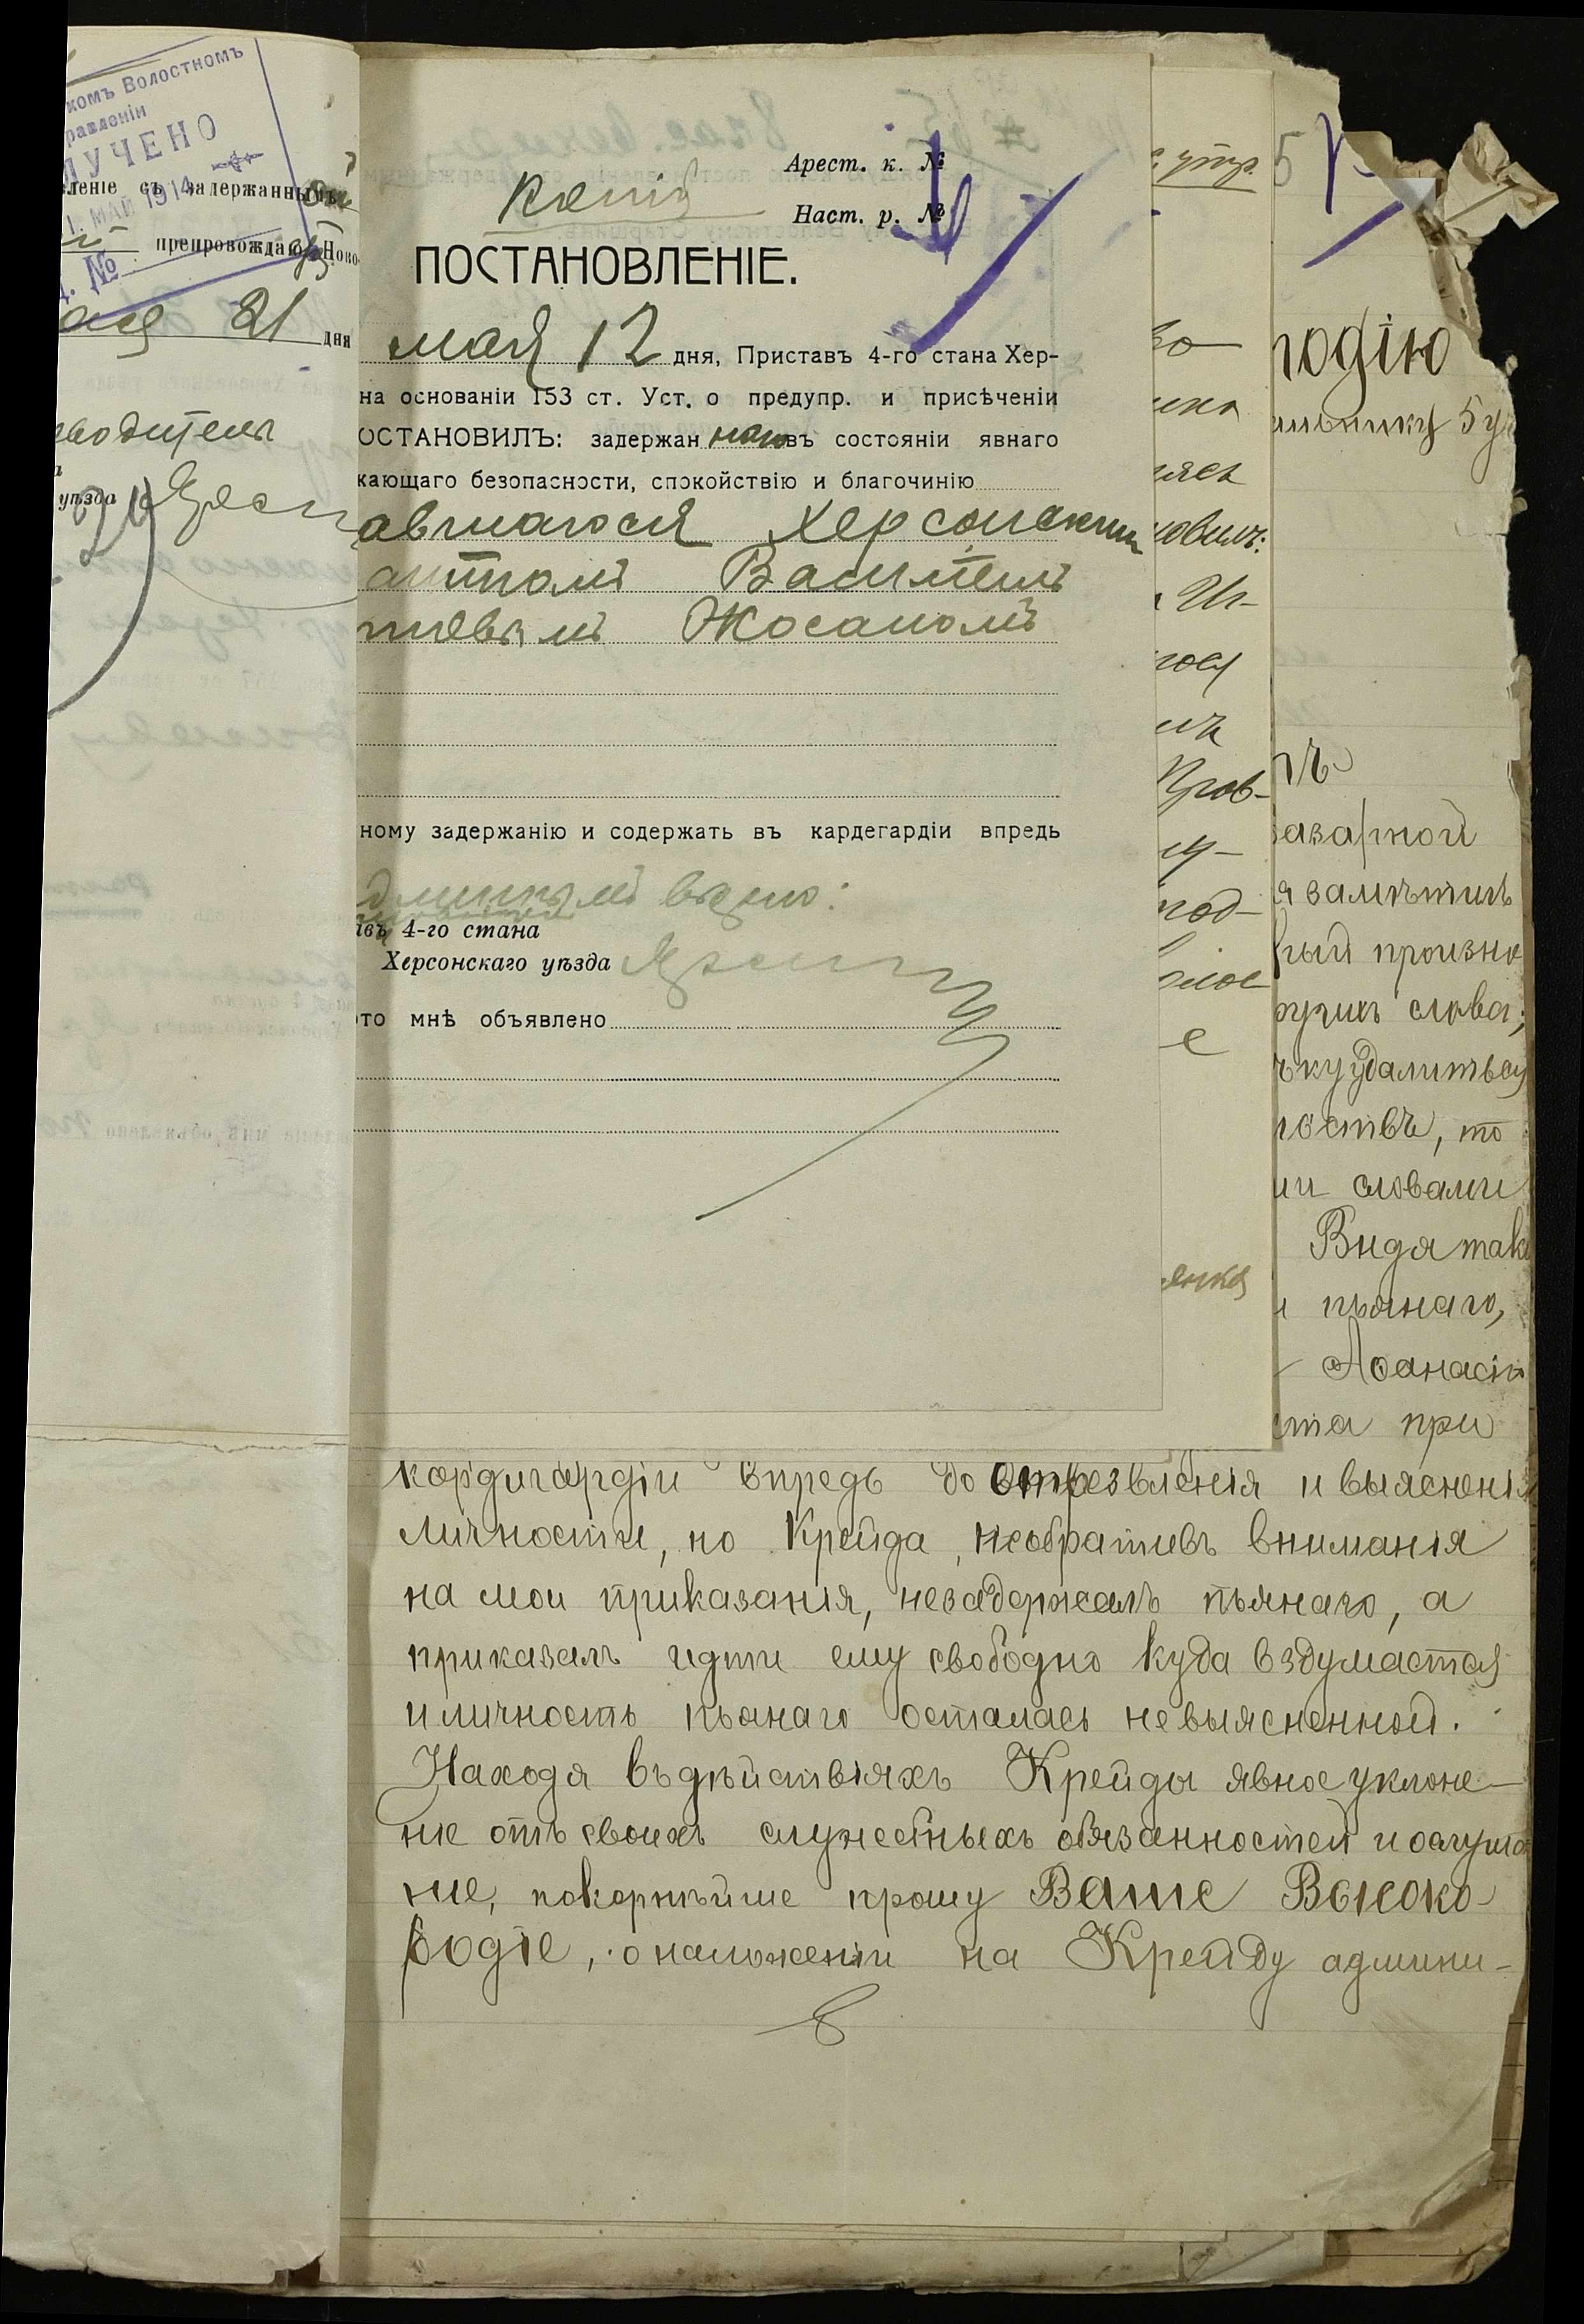 комъ Волостномъ
равленіи
ЛУЧЕНО
леніе съ задержаннымъ
1. МАЙ 1914
препровождаю Ново-
№
21 дня
водитель
уѣзда
Арест. к. №
Копія
Наст. р. №
ПОСТАНОВЛЕНІЕ.
мая 12 дня, Приставъ 4-го стана Хер-
на основаніи 153 ст. Уст. о предупр. и пресѣченіи
ОСТАНОВИЛЪ: задержан въ состояніи явнаго
жающаго безопасности, спокойствію и благочинію
авшагося Херсонским
антомъ Василіемъ
тіевымъ Жосаномъ
ному задержанію и содержать въ кардегардіи впредь
длиннымъ вѣрно:
авъ 4-го стана
Херсонскаго уѣзда
то мнѣ объявлено
утр.
5
новилъ:
родію
5 у
ъ
базарной
я замѣтилъ
ный произно
слова;
ку удалиться
то
ми словами
Видя так
пьянаго,
Аѳанасію
ста при
кордигардіи впредь до отрезвленія и выясненія
личности, но Крейда, необративъ вниманія
на мои приказанія, незадержалъ пьянаго, а
приказалъ идти ему свободно куда вздумается
и личность пьянаго осталась невыясненной.
Находя въ дѣйствіяхъ Крейды явное уклоне-
ніе отъ своихъ служебныхъ обязанностей и ослуша
ніе, покорнѣйше прошу Ваше Высоко-
родіе, о наложеніи на Крейду админи-